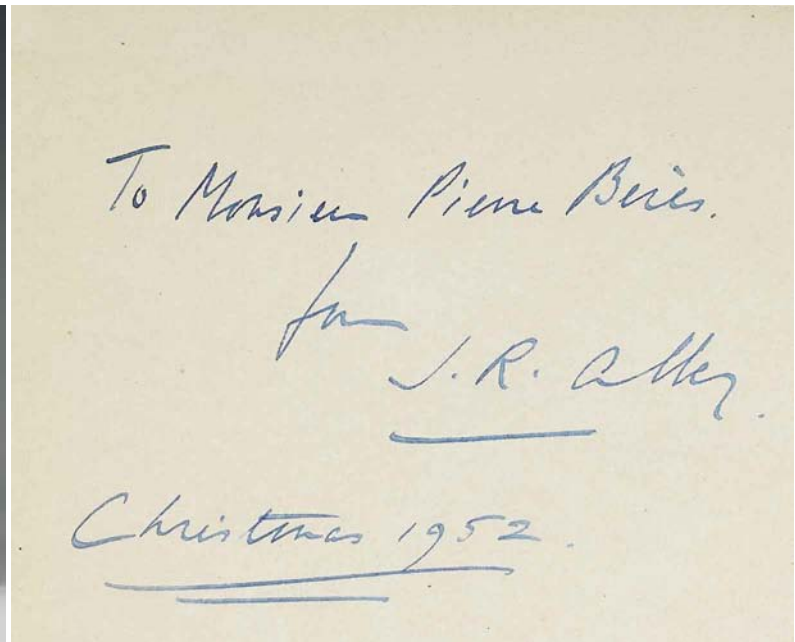 To Monsieur Pierre Berès.
from
J. R. Abbey.
Christmas 1952.